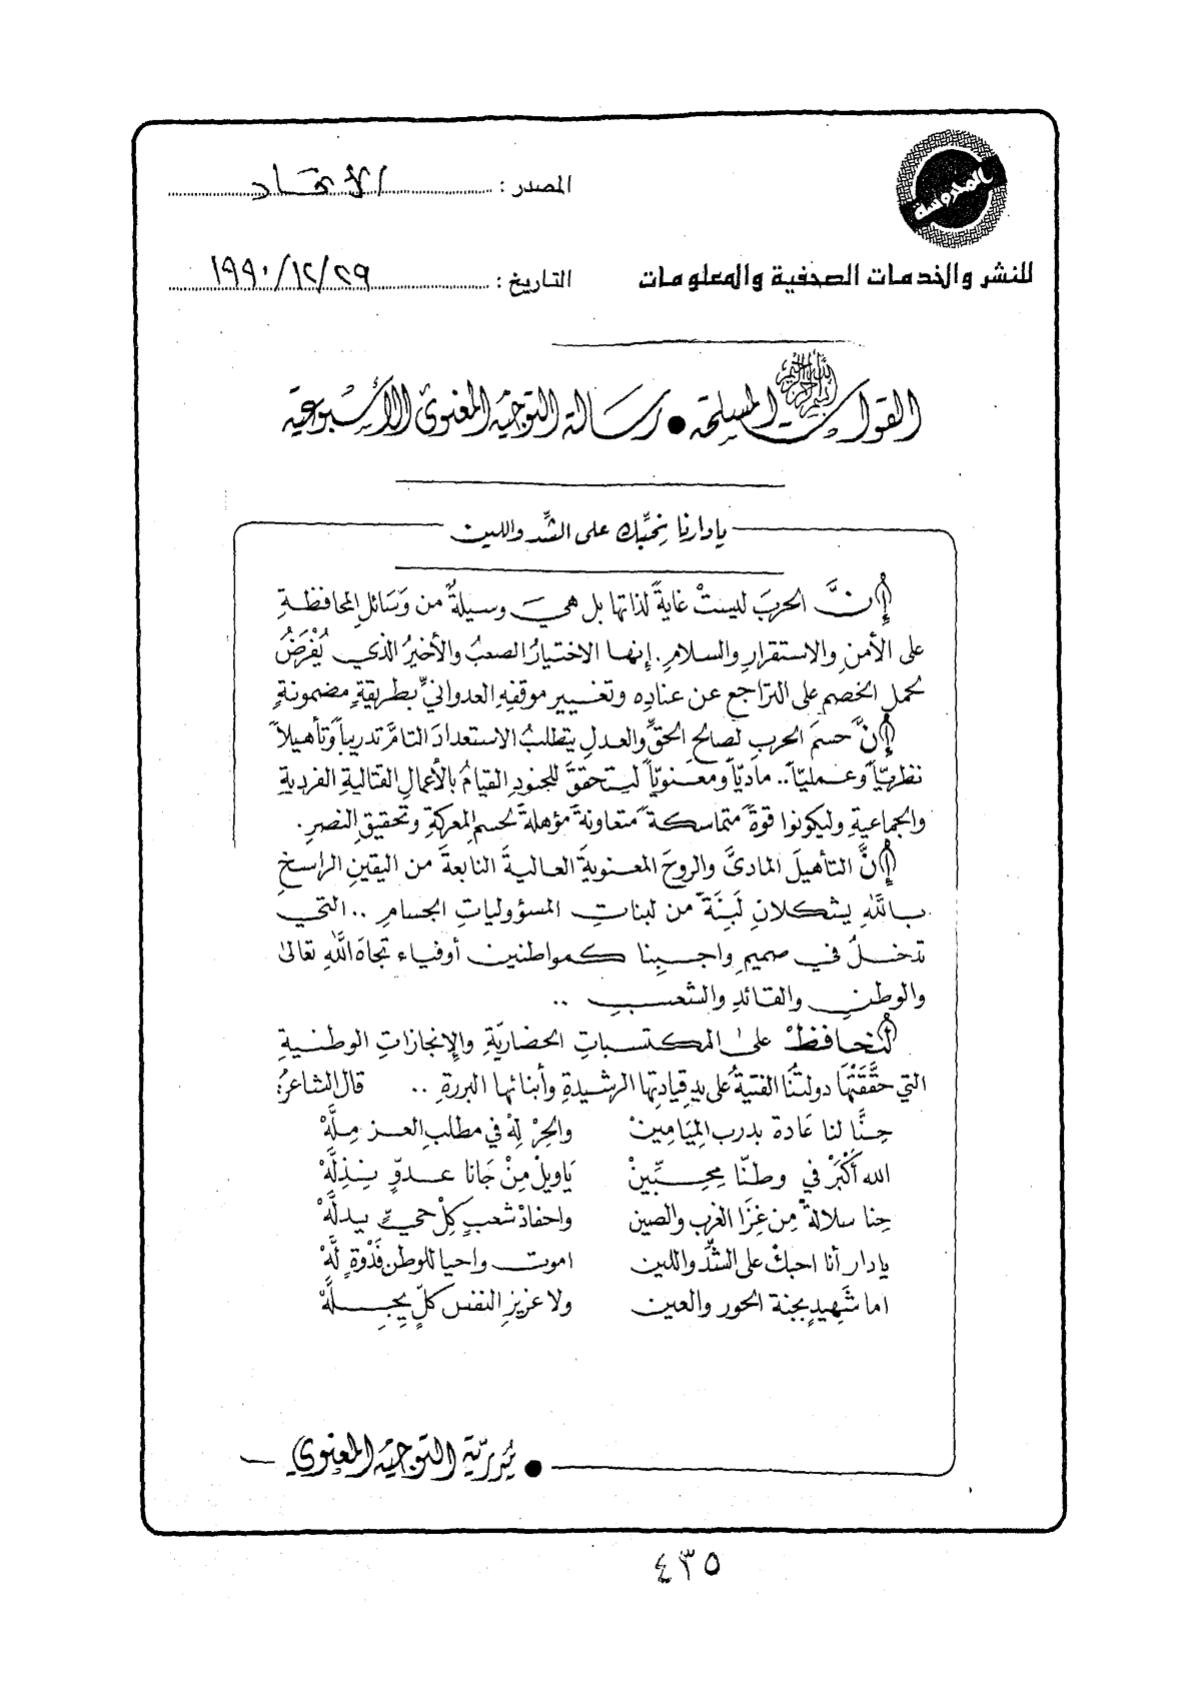 المدروسة
المصدر : الاتحاد
للنشر والخدمات الصحفية والمعلومات
التاريخ : ١٩٩٠/١٢/٢٩
بسم الله الرحمن الرحيم
القوات المسلحة • رسالة التوجيه المعنوى الأسبوعية
يادارنا نحبّك على الشّد واللين
إنَّ الحربَ ليستْ غايةً لذاتها بل هيَ وسيلةٌ من وَسَائلِ المحافظةِ
على الأمنِ والاستقرارِ والسلامِ. إنها الاختيارُ الصعبُ والأخيرُ الذي يُفْرَضُ
لحملِ الخصمِ على التراجعِ عن عنادِه وتغييرِ موقفِهِ العدوانيِّ بطريقةٍ مضمونةٍ
إنَّ حسمَ الحربِ لصالحِ الحقِّ والعدلِ يتطلبُ الاستعدادَ التامَّ تدريباً وتأهيلاً
نظريّاً وعمليّاً.. ماديّاً ومعنويّاً ليتحققَ للجنودِ القيامُ بالأعمالِ القتاليةِ الفرديةِ
والجماعيةِ وليكونوا قوةً متماسكةً متعاونةً مؤهلةً لحسمِ المعركةِ وتحقيقِ النصرِ.
إنَّ التأهيلَ المادىَّ والروحَ المعنويةَ العاليةَ النابعةَ من اليقينِ الراسخِ
باللّهِ يشكلانِ لَبِنَةً من لبناتِ المسؤولياتِ الجسامِ .. التي
تدخلُ في صميمِ واجبِنا كمواطنين أوفياء تجاهَ اللّهِ تعالىٰ
والوطنِ والقائدِ والشعبِ ..
لنحافظْ علىٰ المكتسباتِ الحضاريّةِ والإنجازاتِ الوطنيةِ
التي حقَّقَتْهَا دولتُنا الفتيةُ على يدِ قيادتِها الرشيدةِ وأبنائها البررةِ .. قال الشاعرُ:
حِنَّا لنا عَادة بدرب الميَامِينْ والحِرْ لِهْ في مطلبِ العز مِلَّهْ
الله أَكْبَرْ في وطنّا محِبِّينْ يَاويلْ مِنْ جَانا عدوٍّ نِذِلَّهْ
حِنا سلالةْ مِن غِزَا الغرب والصين واحفادْ شعبٍ كِلْ حيٍّ يدلَّهْ
يادار أنا احبكْ على الشدّ واللين اموت واحيا للوطن فَدْوةٍ لَّهْ
اما شَهِيدٍ بجنة الحور والعين ولا عزيزِ النفس كلٍّ يِجِلَّهْ
• مُديريّة التوجيه المعنوي
٤٣٥